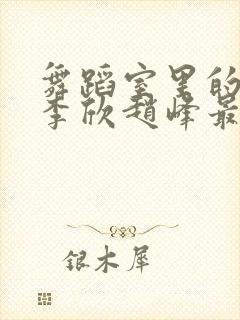 舞蹈室里的
李欣赵峰最
银木犀